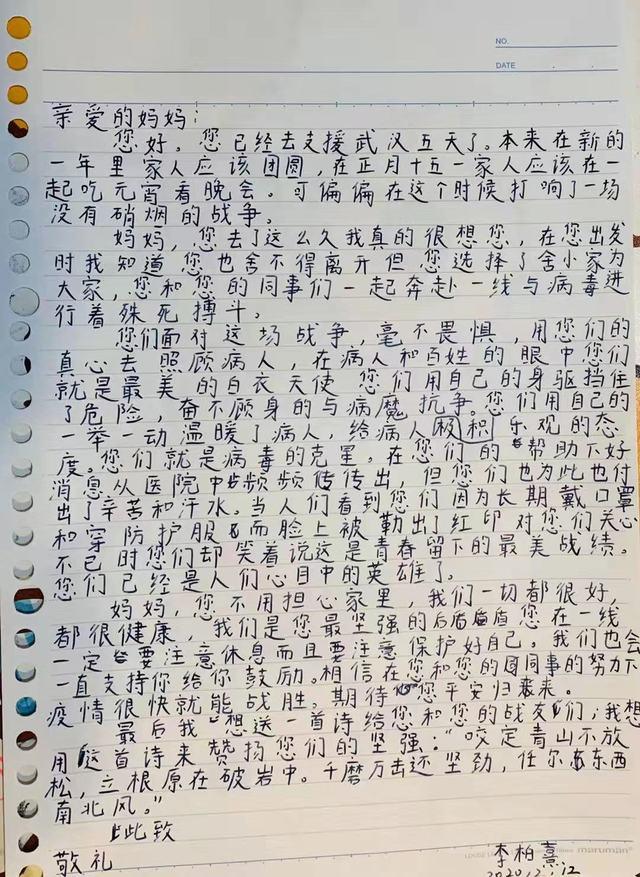 NO.
DATE
亲爱的妈妈:
您好。您已经去支援武汉五天了。本来在新的
一年里家人应该团圆,在正月十五一家人应该在一
起吃元宵看晚会。可偏偏在这个时候打响了一场
没有硝烟的战争。
妈妈,您去了这么久我真的很想您,在您出发
时我知道您也舍不得离开但您选择了舍小家为
大家,您和您的同事们一起奔赴一线与病毒进
行着殊死搏斗。
您们面对这场战争,毫不畏惧,用您们的
真心去照顾病人,在病人和百姓的眼中您们
就是最美的白衣天使 您们用自己的身驱挡住
了危险,奋不顾身的与病魔抗争。您们用自己的
一举一动温暖了病人,给病人积极乐观的态
度。您们就是病毒的克星。在您们的帮助下好
消息从医院中频频传传出,但您们也为此也付
出了辛苦和汗水。当人们看到您们因为长期戴口罩
和穿防护服而脸上被勒出了红印对您们关心
不已时您们却笑着说这是青春留下的最美战绩。
您们已经是人们心目中的英雄了。
妈妈,您不用担心家里,我们一切都很好,
都很健康,我们是您最坚强的后盾您在一线
一定要注意休息而且要注意保护好自己。我们也会
一直支持你给你鼓励。相信在您和您的同事的努力下
疫情很快就能战胜。期待您平安归来。
最后我想送一首诗给您和您的战友们;我想
用这首诗来赞扬您们的坚强:“咬定青山不放
松,立根原在破岩中。千磨万击还坚劲,任尔东西
南北风。”
此致
敬礼
李柏熹
2020.2.12
maruman